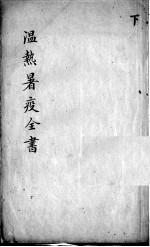 下
温熱暑疫全書